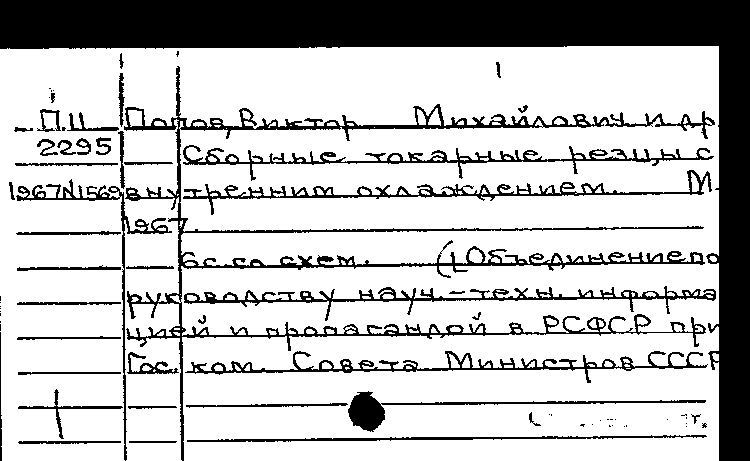 1
П.11 Попов, Виктор Михайлович и др
2295 Сборные токарные резцы с
1967N1569 внутренним охлаждением. М.
1967.
6с. со схем. (1. Объединение по
руководству науч.-техн. информа
цией и пропагандой в РСФСР при
Гос. ком. Совета Министров СССР